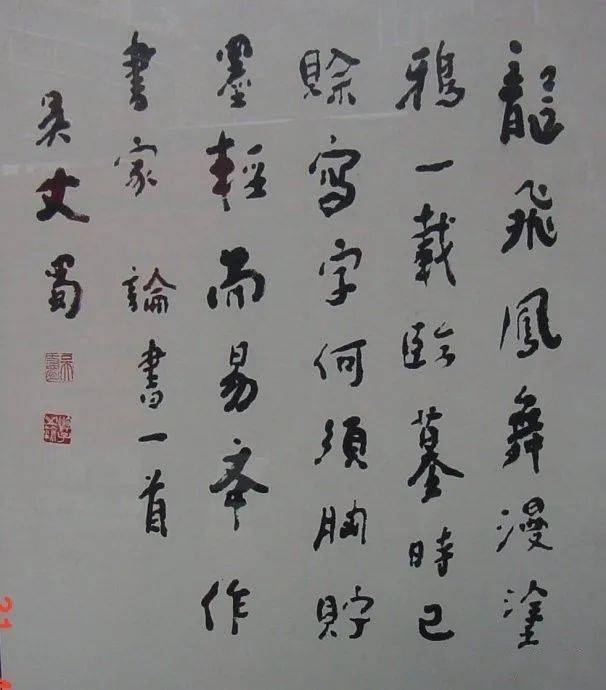 龍飛鳳舞漫塗
鴉一載臨摹時已
賒寫字何須胸貯
墨輕而易举作
書家 論書一首
吳丈蜀
21